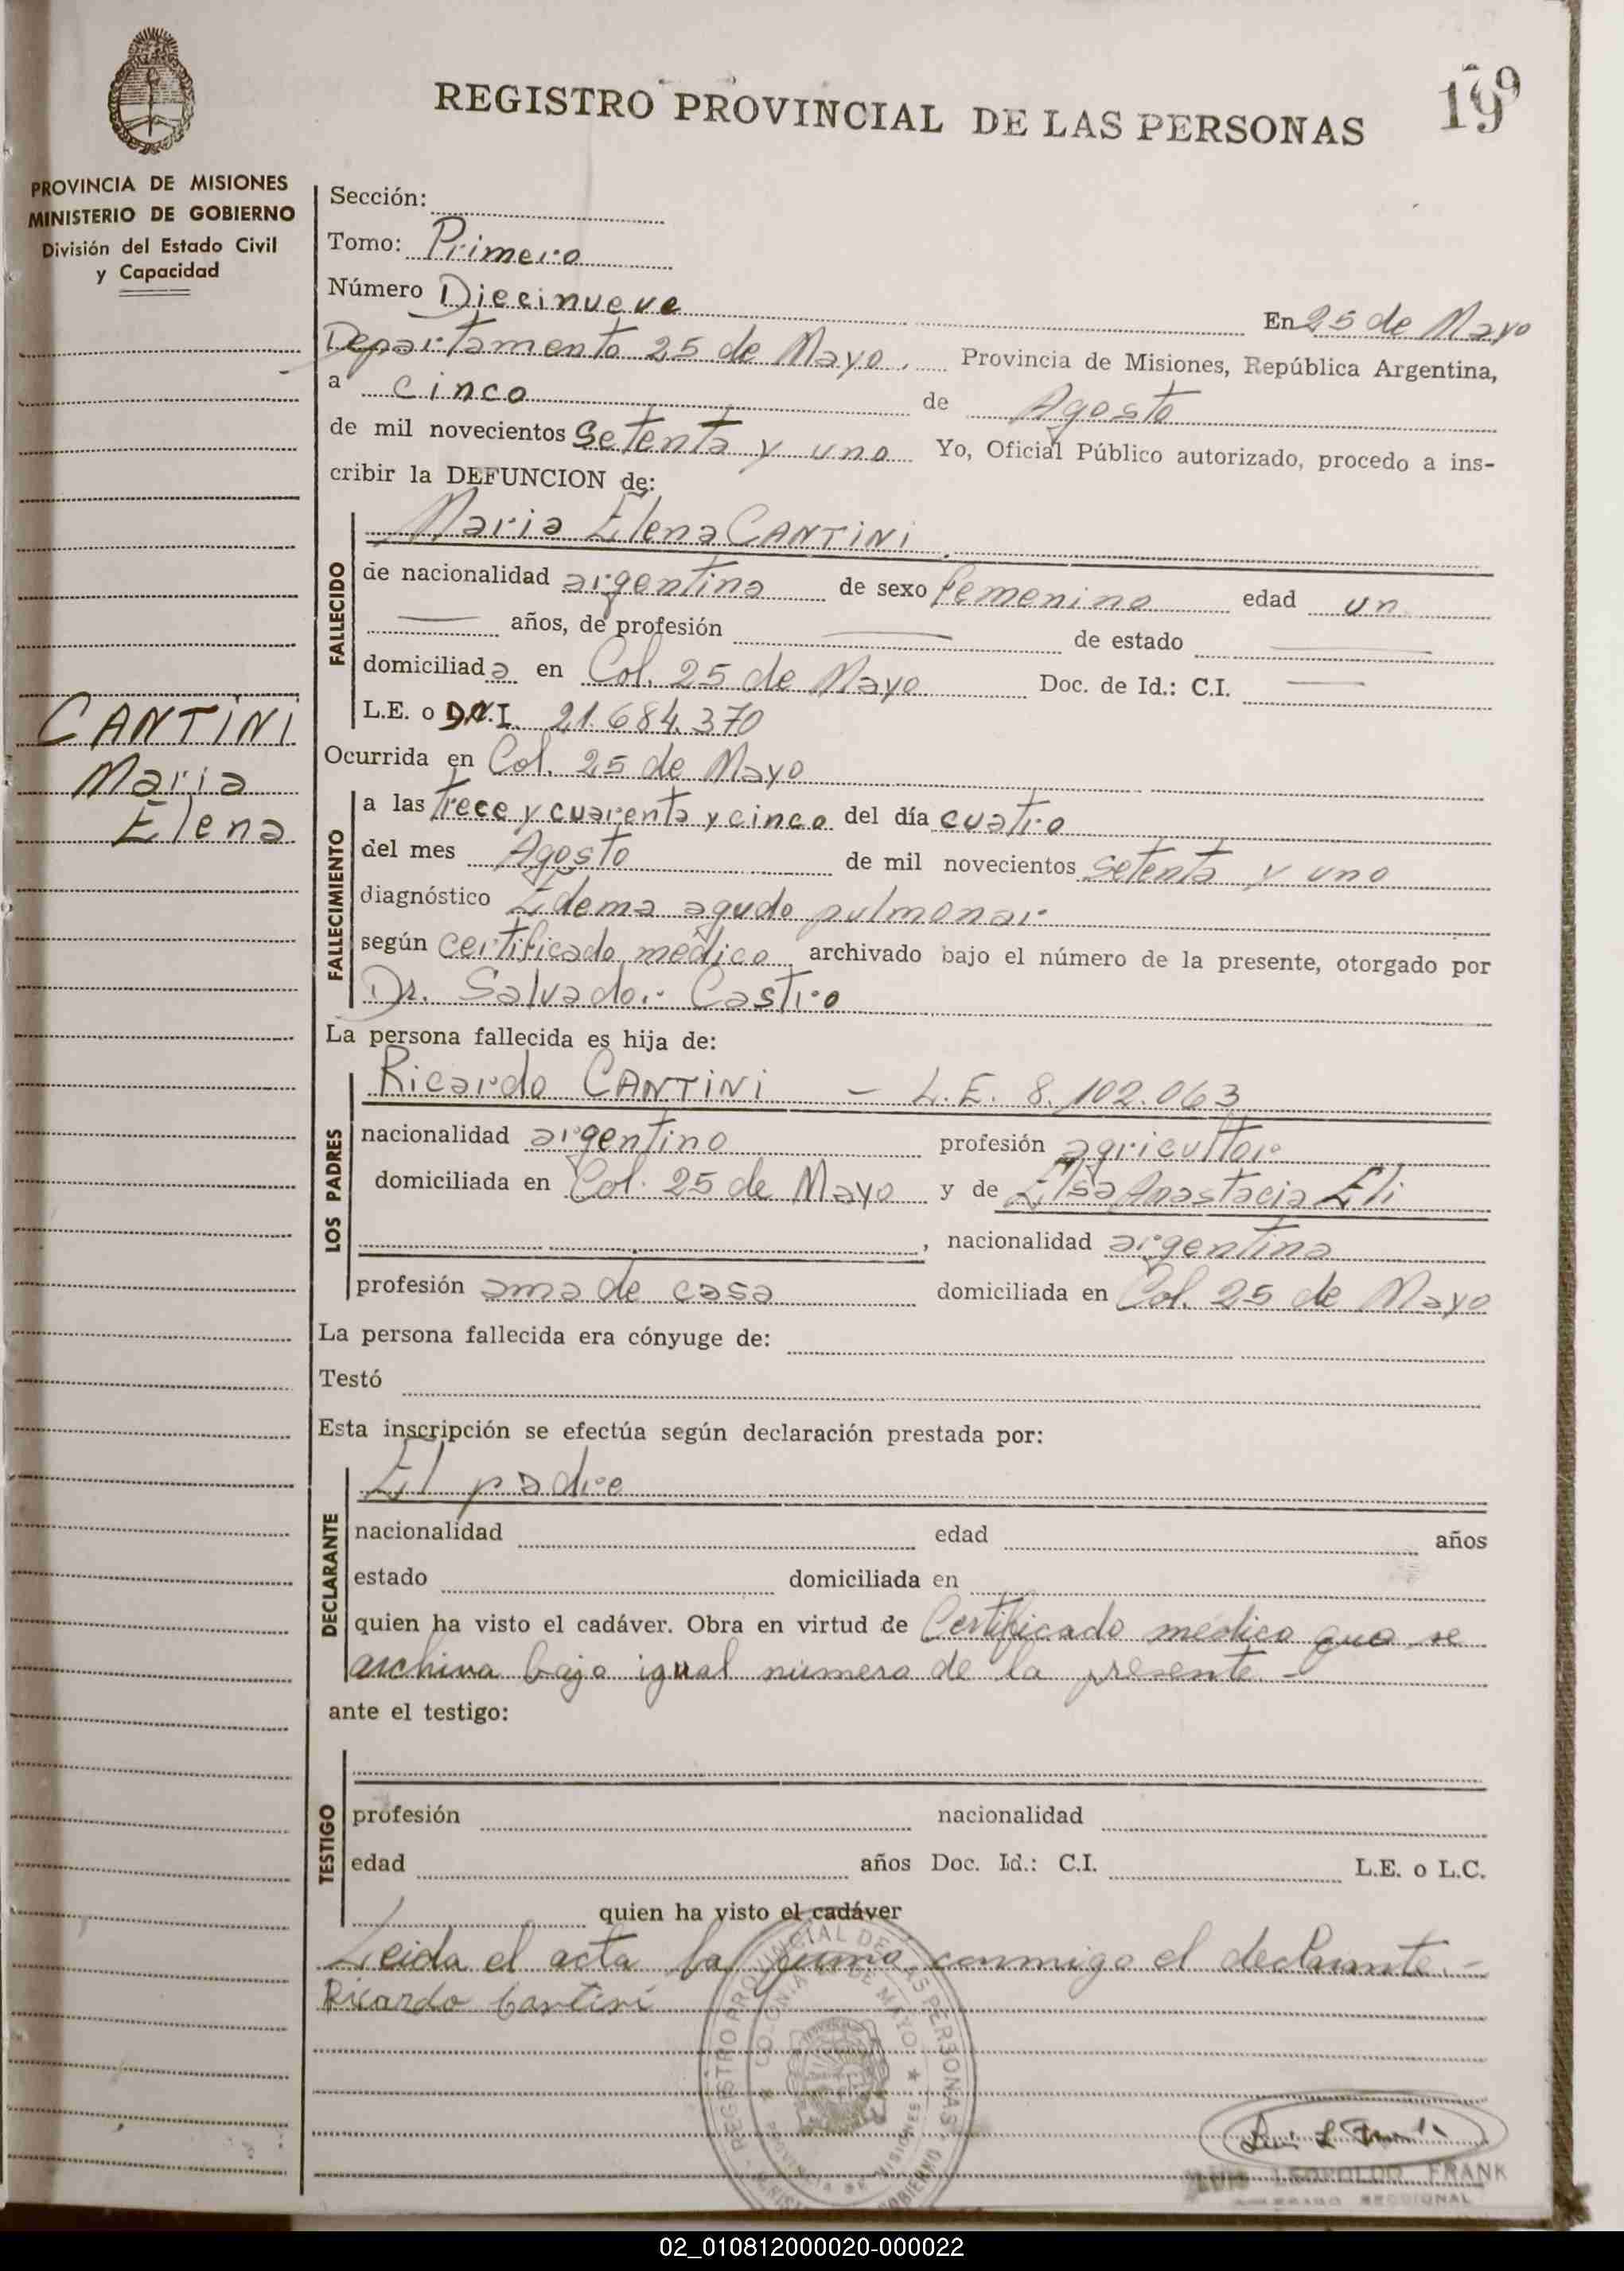 REGISTRO PROVINCIAL DE LAS PERSONAS
19
PROVINCIA DE MISIONES
MINISTERIO DE GOBIERNO
División del Estado Civil
y Capacidad
CANTINI
Maria
Elena
Sección:
Tomo: Primero
Número Diecinueve En 25 de Mayo
Departamento 25 de Mayo, Provincia de Misiones, República Argentina,
a cinco de Agosto
de mil novecientos Setenta y uno Yo, Oficial Público autorizado, procedo a ins-
cribir la DEFUNCION de:
FALLECIDO
Maria Elena CANTINI
de nacionalidad argentina de sexo femenino edad un
— años, de profesión — de estado —
domiciliada en Col. 25 de Mayo Doc. de Id.: C.I. —
L.E. o D.N.I. 21.684.370
Ocurrida en Col. 25 de Mayo
FALLECIMIENTO
a las trece y cuarenta y cinco del día cuatro
del mes Agosto de mil novecientos setenta y uno
diagnóstico Edema agudo pulmonar
según certificado médico archivado bajo el número de la presente, otorgado por
Dr. Salvador Castro
La persona fallecida es hija de:
LOS PADRES
Ricardo CANTINI - L.E. 8.102.063
nacionalidad argentino profesión agricultor
domiciliada en Col. 25 de Mayo y de Elsa Anastacia Eli
, nacionalidad argentina
profesión ama de casa domiciliada en Col. 25 de Mayo
La persona fallecida era cónyuge de:
Testó
Esta inscripción se efectúa según declaración prestada por:
DECLARANTE
El padre
nacionalidad edad años
estado domiciliada en
quien ha visto el cadáver. Obra en virtud de Certificado médico que se
archiva bajo igual número de la presente.-
ante el testigo:
TESTIGO
profesión nacionalidad
edad años Doc. Id.: C.I. L.E. o L.C.
quien ha visto el cadáver
Leida el acta la firma conmigo el declarante.-
Ricardo Cantini
REGISTRO PROVINCIAL DE LAS PERSONAS
COLONIA 25 DE MAYO
PROVINCIA DE MISIONES
LUIS LEOPOLDO FRANK
SECCIONAL
02_010812000020-000022